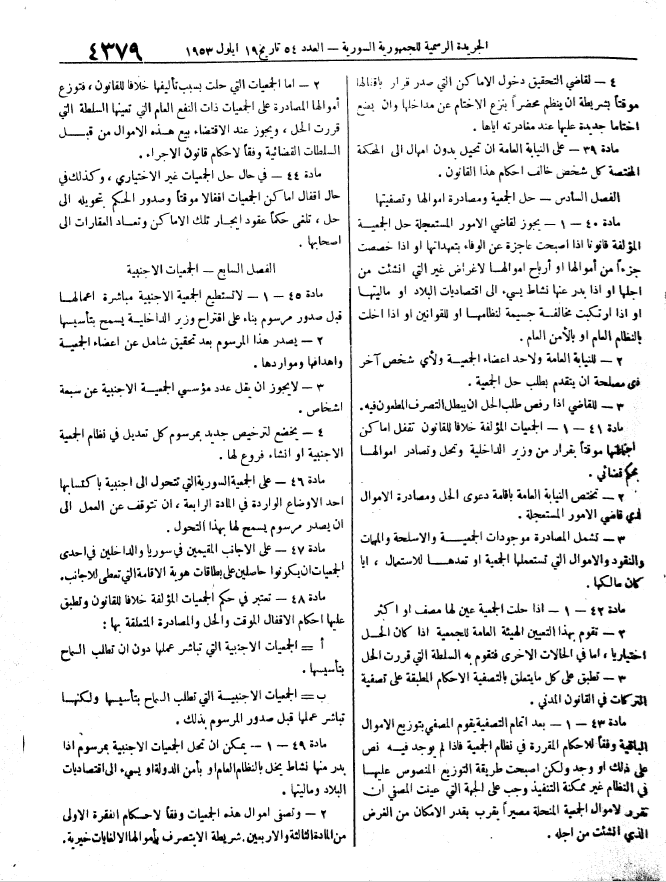 الجريدة الرسمية للجمهورية السورية – العدد ٥٤ تاريخ ١٩ ايلول ١٩٥٣
٤٣٧٩
٤ – لقاضي التحقيق دخول الاماكن التي صدر قرار باقفالها
موقتاً بشريطة ان ينظم محضراً بنزع الاختام عن مداخلها وان يضع
اختاما جديدة عليها عند مغادرته اياها .
مادة ٣٩ – على النيابة العامة ان تحيل بدون امهال الى المحكمة
المختصة كل شخص خالف احكام هذا القانون .
الفصل السادس – حل الجمعية ومصادرة اموالها وتصفيتها
مادة ٤٠ – ١ – يجوز لقاضي الامور المستعجلة حل الجمعية
المؤلفة قانونا اذا اصبحت عاجزة عن الوفاء بتعهداتها او اذا خصصت
جزءاً من أموالها او أرباح اموالها لاغراض غير التي انشئت من
اجلها او اذا بدر عنها نشاط يسيء الى اقتصاديات البلاد او ماليتها
او اذا ارتكبت مخالفة جسيمة لنظامها او للقوانين او اذا اخلت
بالنظام العام او بالأمن العام .
٢ – للنيابة العامة ولاحد اعضاء الجمعية ولأي شخص آخر
ذى مصلحة ان يتقدم بطلب حل الجمعية .
٣ – للقاضي اذا رفض طلب الحل ان يبطل التصرف المطعون فيه .
مادة ٤١ – ١ – الجمعيات المؤلفة خلافا للقانون تقفل اماكن
اجتماعها موقتاً بقرار من وزير الداخلية وتحل وتصادر اموالها
بحكم قضائي .
٢ – تختص النيابة العامة باقامة دعوى الحل ومصادرة الاموال
لدي قاضي الامور المستعجلة .
٣ – تشمل المصادرة موجودات الجمعية والاسلحة والمهمات
والنقود والاموال التي تستعملها الجمعية او تعدها للاستعمال ، ايا
كان مالكها .
مادة ٤٢ – ١ – اذا حلت الجمعية عين لها مصف او اكثر
٢ – تقوم بهذا التعيين الهيئة العامة للجمعية اذا كان الحل
اختياريا ، اما في الحالات الاخرى فتقوم به السلطة التي قررت الحل
٣ – تطبق على كل مايتعلق بالتصفية الاحكام المطبقة على تصفية
التركات في القانون المدني .
مادة ٤٣ – ١ – بعد اتمام التصفية يقوم المصفي بتوزيع الاموال
الباقية وفقاً للاحكام المقررة في نظام الجمعية فاذا لم يوجد فيه نص
على ذلك او وجد ولكن اصبحت طريقة التوزيع المنصوص عليها
في النظام غير ممكنة التنفيذ وجب على الجهة التي عينت المصفي ان
تقرر لاموال الجمعية المنحلة مصيراً يقرب بقدر الامكان من الغرض
الذي انشئت من اجله .
٢ – اما الجمعيات التي حلت بسبب تأليفها خلافا للقانون ، فتوزع
أموالها المصادرة على الجمعيات ذات النفع العام التي تعينها السلطة التي
قررت الحل ، ويجوز عند الاقتضاء بيع هذه الاموال من قبل
السلطات القضائية وفقاً لاحكام قانون الاجراء .
مادة ٤٤ – في حال حل الجمعيات غير الاختياري ، وكذلك في
حال اقفال اماكن الجمعيات اقفالا موقتاً وصدور الحكم بتحويله الى
حل ، تلغى حكماً عقود ايجار تلك الاماكن وتعاد العقارات الى
اصحابها .
الفصل السابع – الجمعيات الاجنبية
مادة ٤٥ – ١ – لاتستطيع الجمعية الاجنبية مباشرة اعمالها
قبل صدور مرسوم بناء على اقتراح وزير الداخلية يسمح بتأسيسها
٢ – يصدر هذا المرسوم بعد تحقيق شامل عن اعضاء الجمعية
واهدافها ومواردها .
٣ – لايجوز ان يقل عدد مؤسسي الجمعية الاجنبية عن سبعة
اشخاص .
٤ – يخضع لترخيص جديد بمرسوم كل تعديل في نظام الجمعية
الاجنبية او انشاء فروع لها .
مادة ٤٦ – على الجمعية السورية التي تتحول الى اجنبية باكتسابها
احد الاوضاع الواردة في المادة الرابعة ، ان تتوقف عن العمل الى
ان يصدر مرسوم يسمح لها بهذا التحول .
مادة ٤٧ – على الاجانب المقيمين في سوريا والداخلين في احدى
الجمعيات ان يكونوا حاصلين على بطاقات هوية الاقامة التي تعطى للاجانب .
مادة ٤٨ – تعتبر في حكم الجمعيات المؤلفة خلافا للقانون وتطبق
عليها احكام الاقفال الموقت والحل والمصادرة المتعلقة بها :
أ = الجمعيات الاجنبية التي تباشر عملها دون ان تطلب السماح
بتأسيسها .
ب = الجمعيات الاجنبية التي تطلب السماح بتأسيسها ولكنها
تباشر عملها قبل صدور المرسوم بذلك .
مادة ٤٩ – ١ – يمكن ان تحل الجمعيات الاجنبية بمرسوم اذا
بدر منها نشاط يخل بالنظام العام او بأمن الدولة او يسيء الى اقتصاديات
البلاد وماليتها .
٢ – وتصفى اموال هذه الجمعيات وفقاً لاحكام الفقرة الاولى
من المادة الثالثة والاربعين . شريطة الايتصرف بأموالها الالغايات خيرية .